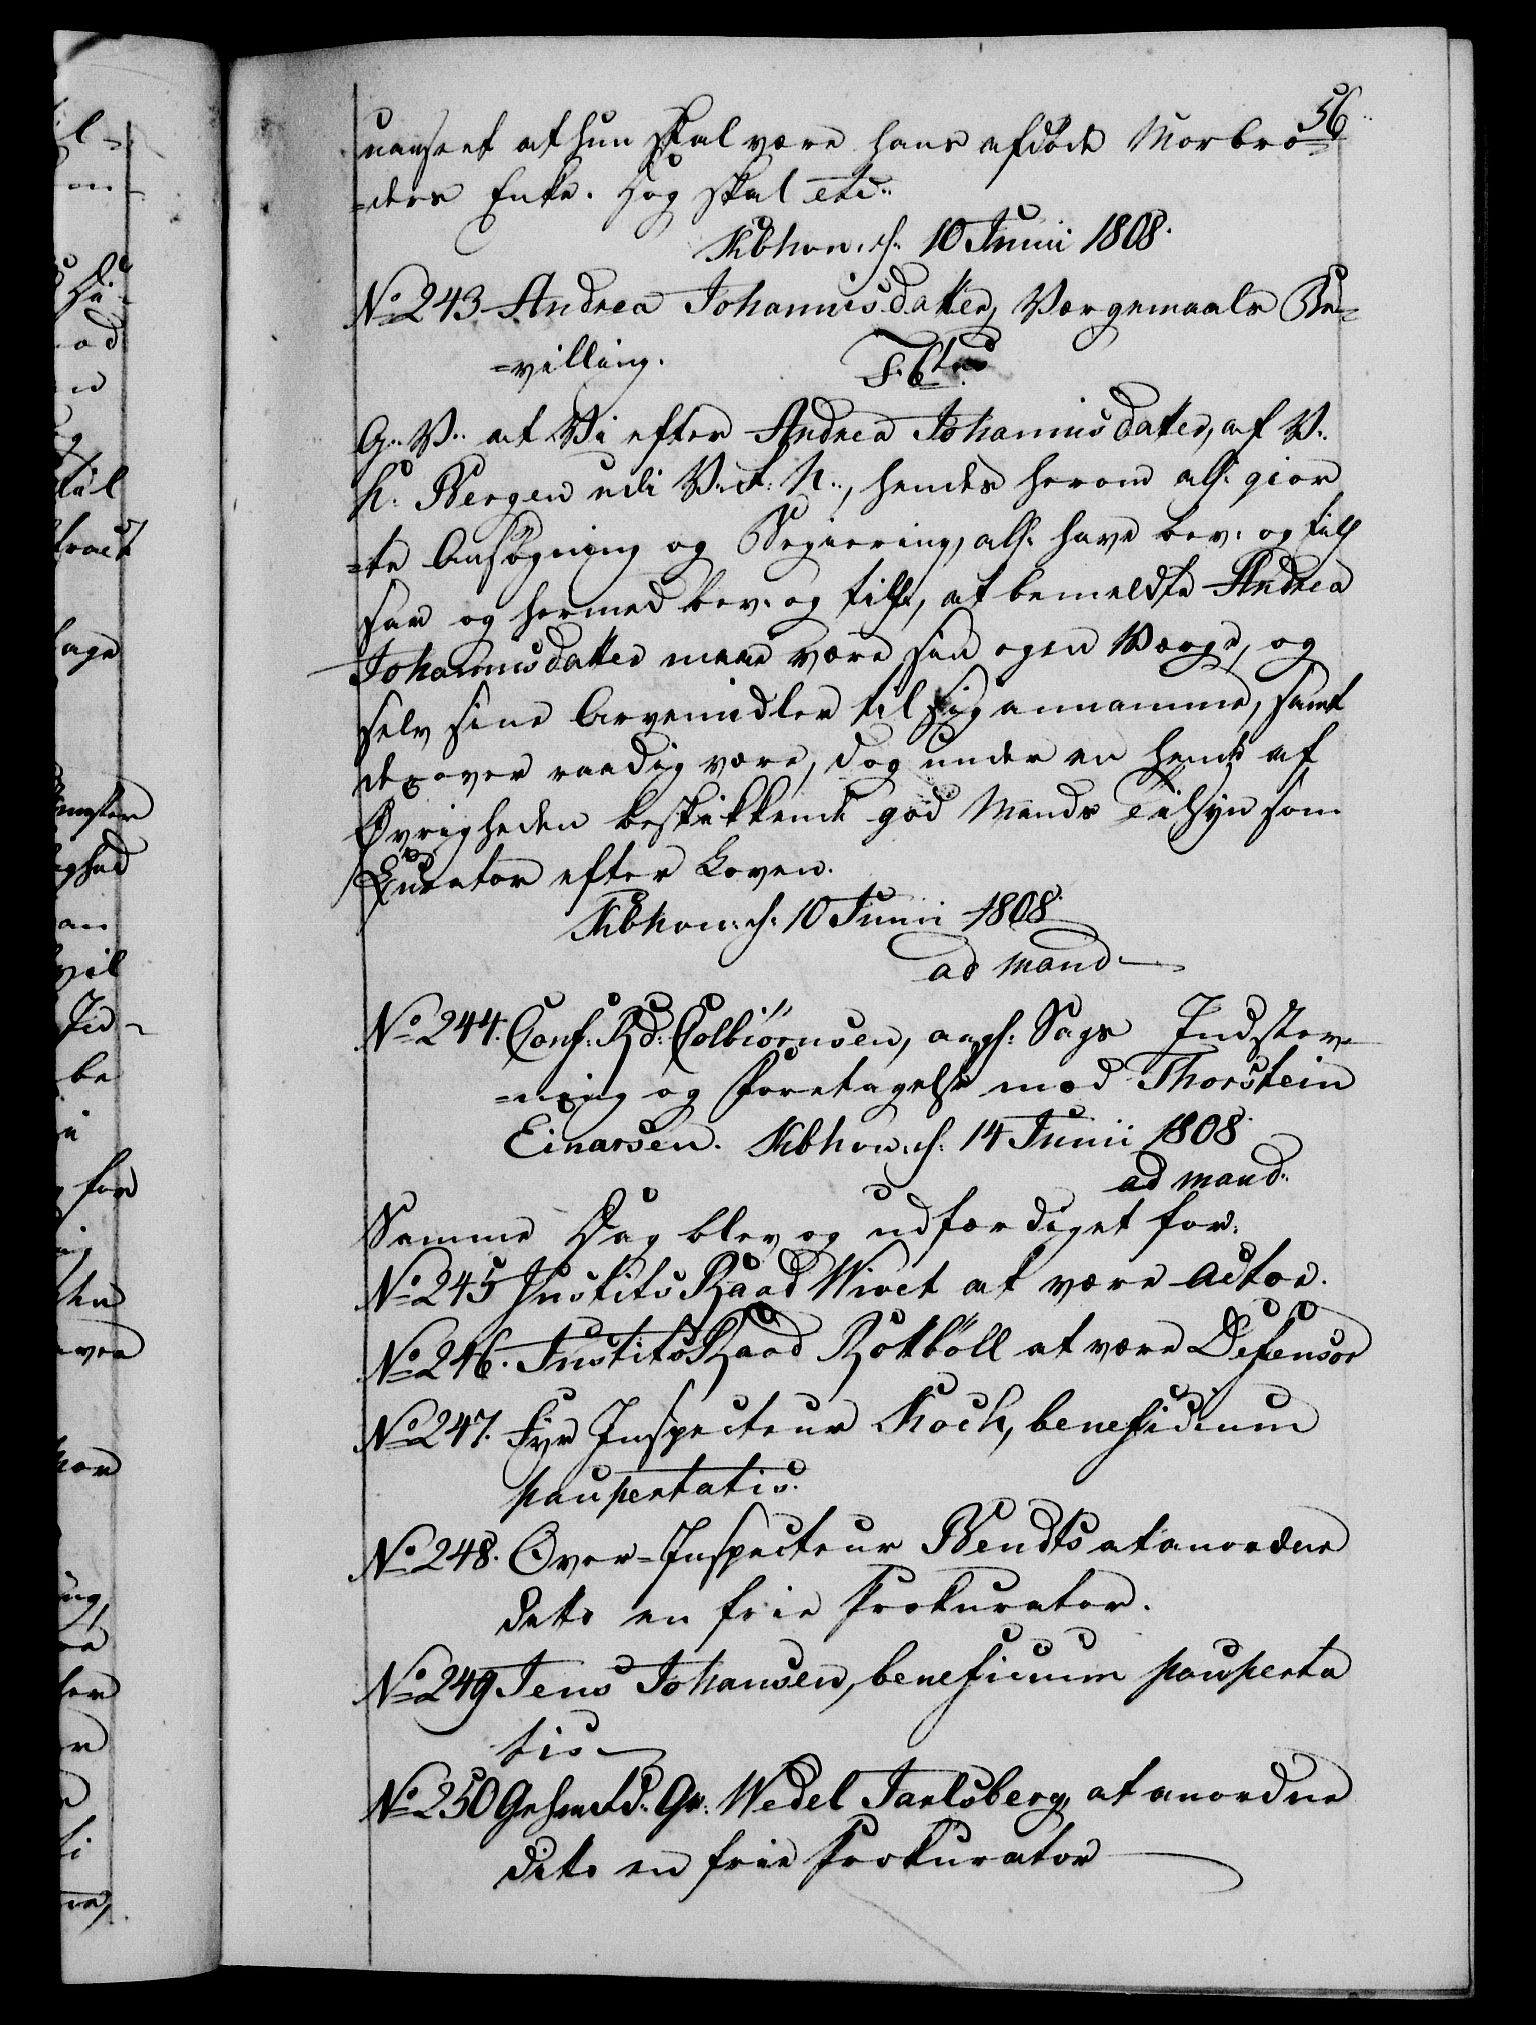 56
uanseet at hun skal være hans afdøde Morbro=
=ders Enke. Dog skal etc:
Kbhvn. d: 10 Junii 1808.
No 243 Andrea Johannisdatter, Værgemaals Be=
=villing.
G: V: at Vi efter Andrea Johannisdatter, af V:
K: Bergen udi V: R: N:, hendes herom all: gior
=te Ansøgning og Begiering, all: have bev: og till
saa og hermed bev: og till:, at bemeldte Andrea
Johannisdatter maae være sin egen Værge, og
selv sine Arvemidler til sig annamme, samt
derover raadig være, dog under en hende af
Øvrigheden beskikkende god Mands Tilsyn som
Curator efter Loven.
Kbhvn: d: 10 Junii 1808
ad mand
No 244. Conf: Rd: Colbiørnsen, angl: Sags Indstev=
=ning og Foretagelse mod Thorstein
Einarsen. Kbhvn: d: 14 Junii 1808.
ad mand:
Samme Dag blev og udfærdiget for:
No 245 Justits Raad Wivet at være Actor.
No 246. Justits Raad Rottböll at være Defensor
No 247. Fyr Inspecteur Koch, beneficium
paupertatis.
No 248. Over=Inspecteur Bendts at anordne
dito en frie Prokurator.
No 249 Jens Johansen, beneficium pauperta
tis
No 250 Geheimerd: Gr: Wedel Jarlsberg, at anordne
dito en frie Prokurator